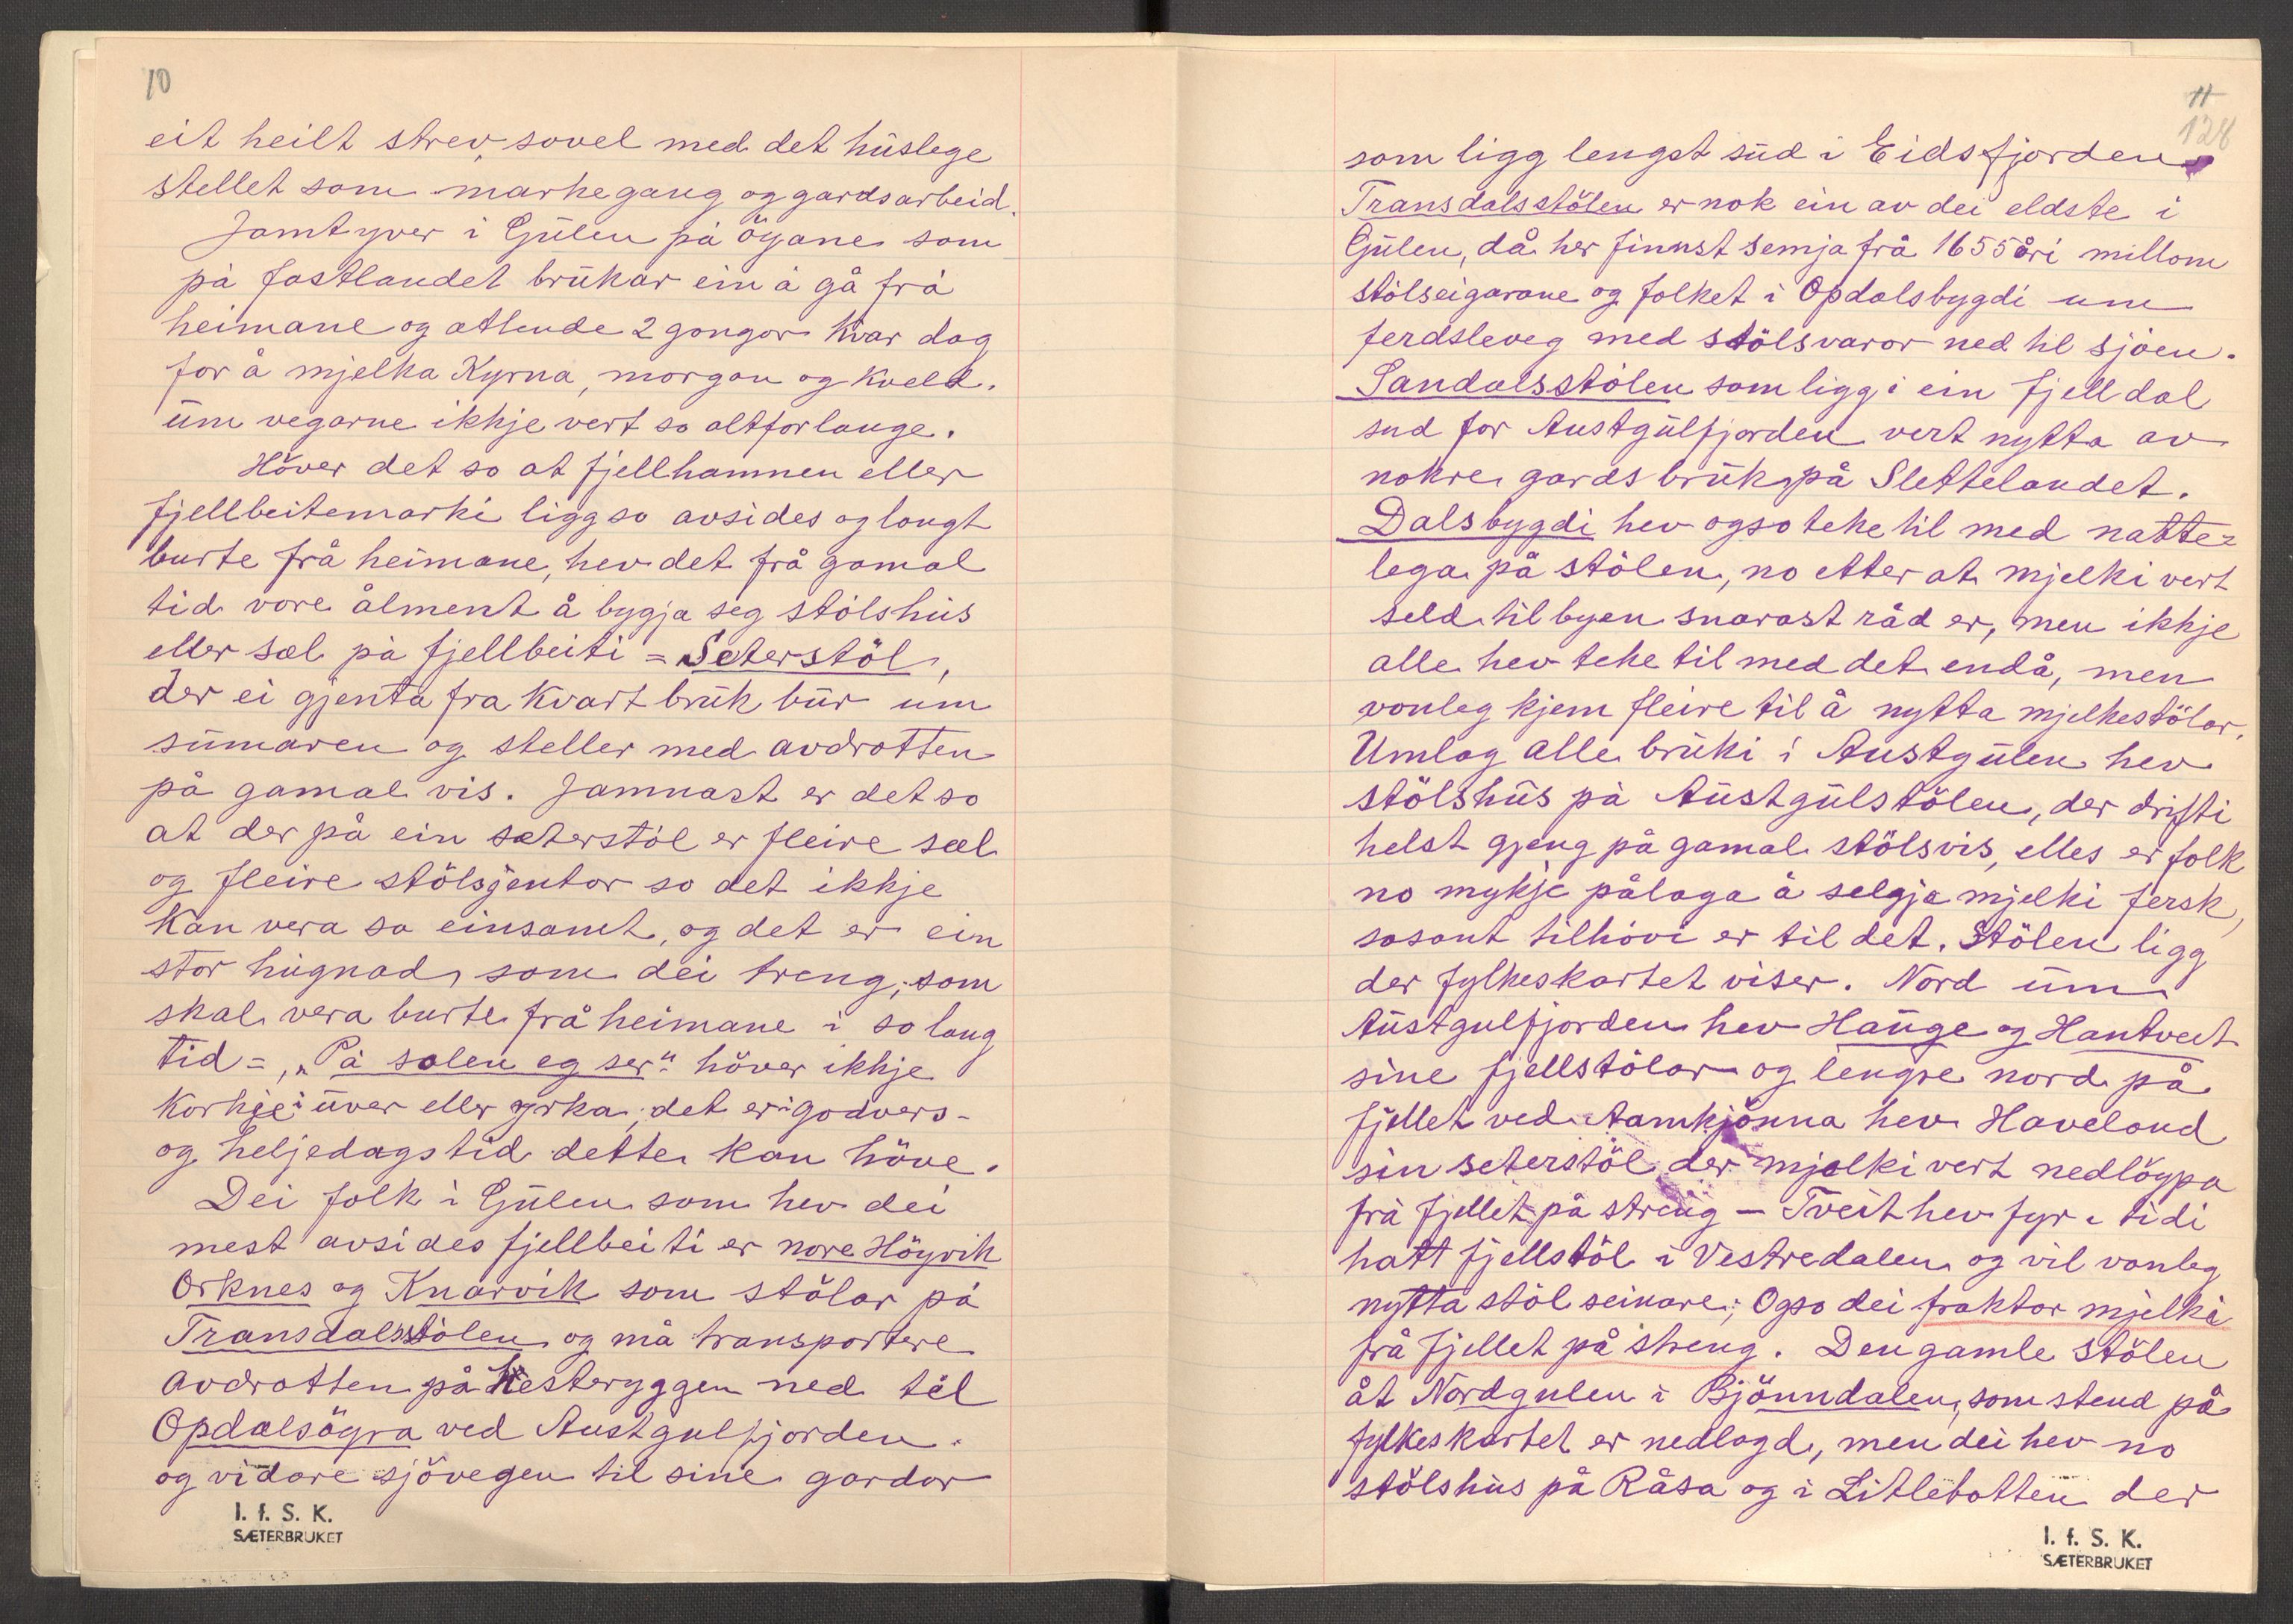 10
eit heilt strev, sovel med det huslege
stellet som markegang og gardsarbeid.
Jamtyver i Gulen på öyane som
på fastlandet brukar ein å gå frå
heimane og attende 2 gongor kvar dag
for å mjelka Kyrna, morgon og kveld.
um vegarne ikkje vert so altforlange.
Höver det so at fjellhamnen eller
fjellbeitemarki ligg so avsides og langt
burte frå heimane, hev det frå gamal
tid vore ålment å bygja seg stölshus
eller sæl på fjellbeiti = Seterstöl,
der ei gjenta fra kvart bruk bur um
sumaren og steller med avdrotten
på gamal vis. Jamnast er det so
at der på ein sæterstöl er fleire sæl
og fleire stölsjentor so det ikkje
kan vera so einsamt, og det er ein
stor hugnad, som dei treng, som
skal vera burte frå heimane i so lang
tid =, „På solen eg ser" höver ikkje
korkje i uver eller yrka, det er i godvers-
og heljedagstid dette kan höve.
Dei folk i Gulen som hev dei
mest avsides fjellbeiti er nore Höyvik
Orknes og Knarvik som stölar på
Transdalsstölen og må transportere
avdrotten på hesteryggen ned til
Opdalsöyra ved Austgulfjorden.
og vidare sjövegen til sine gardar
I. f. S. K.
SÆTERBRUKET
11
128
som ligg lengst sud i Eidsfjorden
Transdalsstölen er nok ein av dei eldste i
Gulen, då her finnst semja frå 1655 åri millom
stölseigarane og folket i Opdalsbygdi um
ferdsleveg med stölsvaror ned til sjöen.
Sandalsstölen som ligg i ein fjelldal
sud for Austgulfjorden vert nytta av
nokre gardsbruk på Slettelandet.
Dalsbygdi hev ogso teke til med natte=
lega på stölen, no etter at mjelki vert
seld til byen snarast råd er, men ikkje
alle hev teke til med det endå, men
vonleg kjem fleire til å nytta mjelkestölar.
Umlag alle bruki i Austgulen hev
stölshus på Austgulstölen, der drifti
helst gjeng på gamal stölsvis, elles er folk
no mykje pålaga å selgja mjelki fersk,
sosant tilhövi er til det. Stölen ligg
der fylkeskartet viser. Nord um
Austgulfjorden hev Hauge og Hantveit
sine fjellstölar og lengre nord på
fjellet ved Aamkjönna hev Haveland
sin seterstöl der mjelki vert nedlöypa
frå fjellet på streng – Tveit hev fyr i tidi
hatt fjellstöl i Vestredalen og vil vonleg
nytta stöl seinare; Ogso dei fraktar mjelki
frå fjellet på streng. Den gamle stölen
åt Nordgulen i Bjönndalen, som stend på
fylkeskartet er nedlagd, men dei hev no
stölshus på Råsa og i Litlebotten der
I. f. S. K.
SÆTERBRUKET